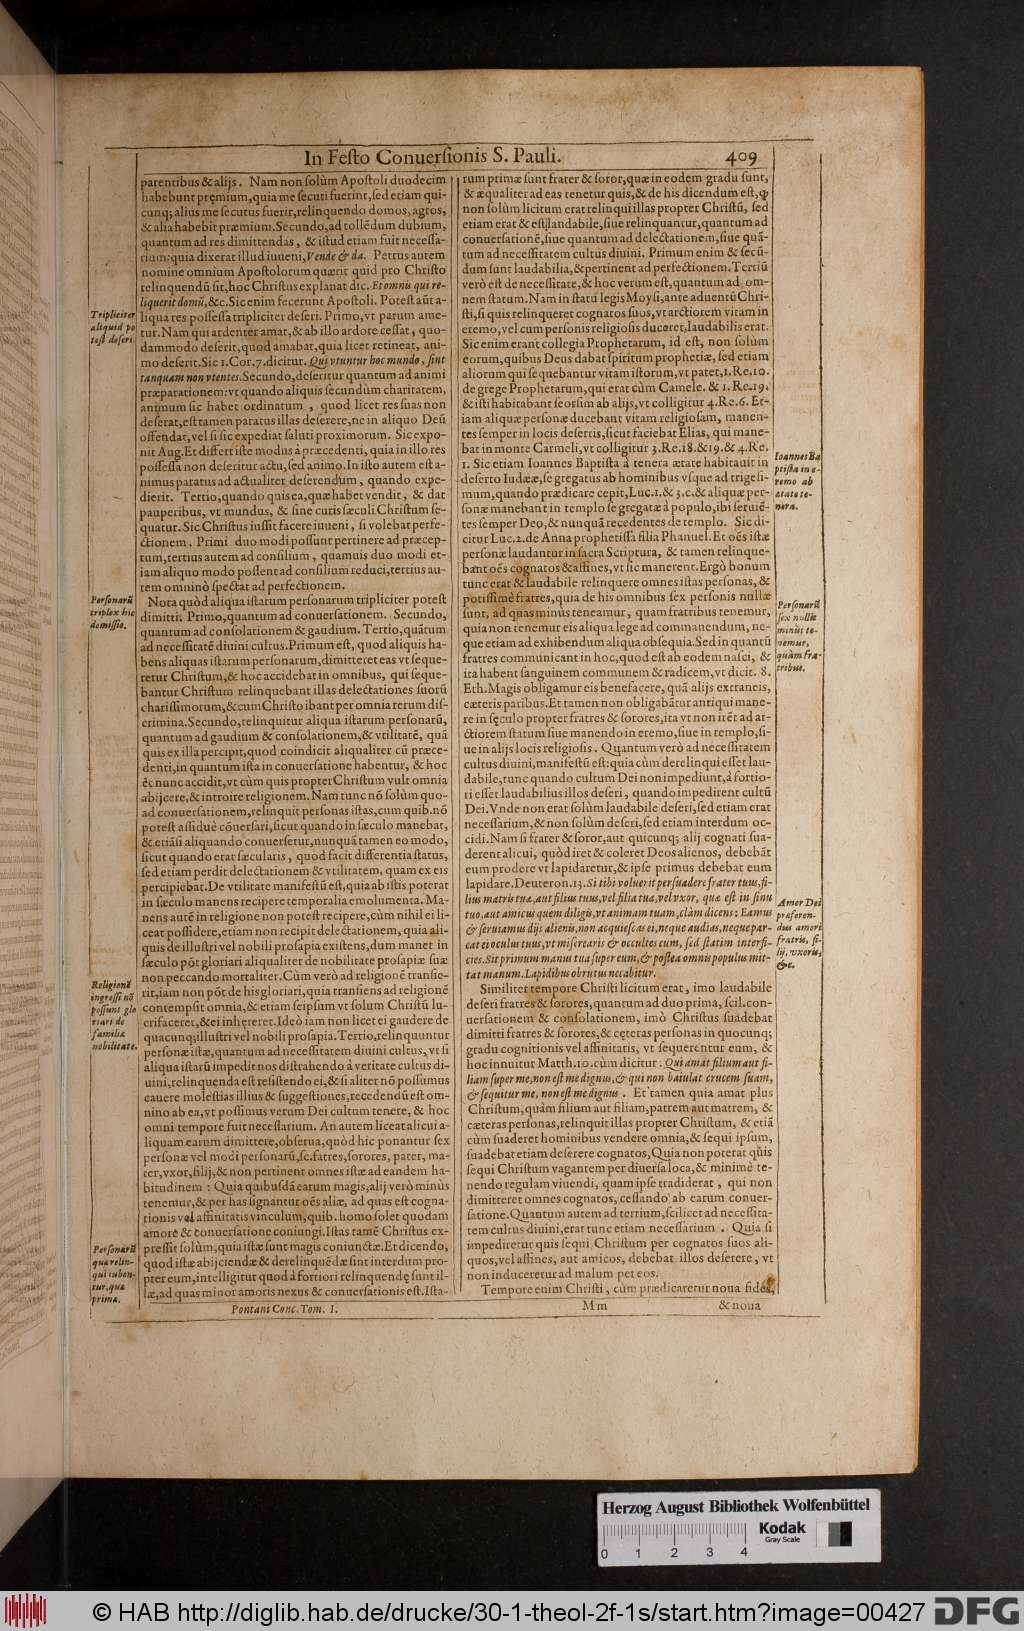 In Festo Conuersionis S. Pauli. 409
parentibus & alijs. Nam non solùm Apostoli duodecim
habebunt pręmium, quia me secuti fuerint, sed etiam qui-
cunq; alius me secutus fuerit, relinquendo domos, agros,
& alia habebit præmium. Secundo, ad tollẽdum dubium,
quantum ad res dimittendas, & istud etiam fuit necessa-
rium: quia dixerat illud iuueni, Vende & da. Petrus autem
nomine omnium Apostolorum quærit quid pro Christo
relinquendũ sit, hoc Christus explanat dic. Et omnis qui re-
liquerit domũ, &c. Sic enim fecerunt Apostoli. Potest aũt a-
liqua res possessa tripliciter deseri. Primo, vt parum ame-
tur. Nam qui ardenter amat, & ab illo ardore cessat, quo-
dammodo deserit, quod amabat, quia licet retineat, ani-
mo deserit. Sic 1. Cor. 7. dicitur. Qui vtuntur hoc mundo, sint
tanquam non vtentes. Secundo, deseritur quantum ad animi
præparationem: vt quando aliquis secundùm charitatem,
animum sic habet ordinatum, quod licet res suas non
deserat, est tamen paratus illas deserere, ne in aliquo Deũ
offendat, vel si sic expediat saluti proximorum. Sic expo-
nit Aug. Et differt iste modus à præcedenti, quia in illo res
possessa non deseritur actu, sed animo. In isto autem est a-
nimus paratus ad actualiter deserendum, quando expe-
dierit. Tertio, quando quis ea, quæ habet vendit, & dat
pauperibus, vt mundus, & sine curis sæculi Christum se-
quatur. Sic Christus iussit facere iuueni, si volebat perfe-
ctionem. Primi duo modi possunt pertinere ad præcep-
tum, tertius autem ad consilium, quamuis duo modi et-
iam aliquo modo possent ad consilium reduci, tertius au-
tem omninò spectat ad perfectionem.
Nota quòd aliqua istarum personarum tripliciter potest
dimitti. Primo, quantum ad conuersationem. Secundo,
quantum ad consolationem & gaudium. Tertio, quãtum
ad necessitatẽ diuini cultus. Primum est, quod aliquis ha-
bens aliquas istarum personarum, dimitteret eas vt seque-
retur Christum, & hoc accidebat in omnibus, qui seque-
bantur Christum relinquebant illas delectationes suorũ
charissimorum, & cum Christo ibant per omnia terum dis-
crimina. Secundo, relinquitur aliqua istarum personarũ,
quantum ad gaudium & consolationem, & vtilitatẽ, quã
quis ex illa percipit, quod coindicit aliqualiter cũ præce-
denti, in quantum ista in conuersatione habentur, & hoc
ẽt nunc accidit, vt cùm quis propter Christum vult omnia
abijcere, & introire religionem. Nam tunc nõ solùm quo-
ad conuersationem, relinquit personas istas, cum quib. nõ
potest assiduè cõuersari, sicut quando in sæculo manebat,
& etiãsi aliquando conuersetur, nunquã tamen eo modo,
sicut quando erat sæcularis, quod facit differentia status,
sed etiam perdit delectationem & vtilitatem, quam ex eis
percipiebat. De vtilitate manifestũ est, quia ab istis poterat
in sæculo manens recipere temporalia emolumenta. Ma-
nens autẽ in religione non potest recipere, cùm nihil ei li-
ceat possidere, etiam non recipit delectationem, quia ali-
quis de illustri vel nobili prosapia existens, dum manet in
sæculo põt gloriari aliqualiter de nobilitate prosapiæ suæ
non peccando mortaliter. Cùm verò ad religionẽ transie-
rit, iam non põt de his gloriari, quia transiens ad religionẽ
contempsit omnia, & etiam seipsum vt solum Christũ lu-
crifaceret, & ei inhęreret. Ideò iam non licet ei gaudere de
quacunq; illustri vel nobili prosapia. Tertio, relinquuntur
personæ istæ, quantum ad necessitatem diuini cultus, vt si
aliqua istarũ impedit nos distrahendo à veritate cultus di-
uini, relinquenda est resistendo ei, & si aliter nõ possumus
cauere molestias illius & suggestiones, recedendũ est om-
nino ab ea, vt possimus verum Dei cultum tenere, & hoc
omni tempore fuit necessarium. An autem liceat alicui a-
liquam earum dimittere, obserua, quòd hic ponantur sex
personæ vel modi personarũ, sc. fatres, sorores, pater, ma-
ter, vxor, filij, & non pertinent omnes istæ ad eandem ha-
bitudinem: Quia quibusdã earum magis, alij verò minùs
tenemur, & per has signantur oẽs aliæ, ad quas est cogna-
tionis vel affinitatis vinculum, quib. homo solet quodam
amore & conuersatione coniungi. Istas tamẽ Christus ex-
pressit solùm, quia istæ sunt magis coniunctæ. Et dicendo,
quòd istæ abijciendæ & derelinquẽdæ sint interdum pro-
pter eum, intelligitur quod à fortiori relinquendę sunt il-
læ, ad quas minor amoris nexus & conuersationis est. Ista-
Tripliciter
aliquid po
test deseri.
Personarũ
triplex hic
demissio.
Religionẽ
ingressi nõ
possunt glo
riari de
familiæ
nobilitate.
Personarũ
quæ relin-
qui iuben-
tur, quæ
prima.
rum primæ sunt frater & soror, quæ in eodem gradu sunt,
& æqualiter ad eas tenetur quis, & de his dicendum est, ꝙ
non solùm licitum erat relinqui illas propter Christũ, sed
etiam erat & est laudabile, siue relinquantur, quantum ad
conuersationẽ, siue quantum ad delectationem, siue quã-
tum ad necessitatem cultus diuini. Primum enim & secũ-
dum sunt laudabilia, & pertinent ad perfectionem. Tertiũ
verò est de necessitate, & hoc verum est, quantum ad om-
nem statum. Nam in statu legis Moysi, ante aduentũ Chri-
sti, si quis relinqueret cognatos suos, vt arctiorem vitam in
eremo, vel cum personis religiosis duceret, laudabilis erat.
Sic enim erant collegia Prophetarum, id est, non solùm
eorum, quibus Deus dabat spiritum prophetiæ, sed etiam
aliorum qui sequebantur vitam istorum, vt patet, 1. Re. 10.
de grege Prophetarum, qui erat cùm Camele. & 1. Re. 19.
& isti habitabant seorsim ab alijs, vt colligitur 4. Re. 6. Et-
iam aliquæ personæ ducebant vitam religiosam, manen-
tes semper in locis desertis, sicut faciebat Elias, qui mane-
bat in monte Carmeli, vt colligitur 3. Re. 18. & 19. & 4. Re.
1. Sic etiam Ioannes Baptista à tenera ætate habitauit in
deserto Iudææ, se gregatus ab hominibus vsque ad trigesi-
mum, quando prædicare cepit, Luc. 1. & 3. c. & aliquæ per-
sonæ manebant in templo segregatæ à populo, ibi seruiẽ-
tes semper Deo, & nunquã recedentes de templo. Sic di-
citur Luc. 2. de Anna prophetissa filia Phanuel. Et oẽs istæ
personæ laudantur in sacra Scriptura, & tamen relinque-
bant oẽs cognatos & affines, vt sic manerent. Ergò bonum
tunc erat & laudabile relinquere omnes istas personas, &
potissimè fratres, quia de his omnibus sex personis nullæ
sunt, ad quas minùs teneamur, quam fratribus tenemur,
quia non tenemur eis aliqua lege ad commanendum, ne-
que etiam ad exhibendum aliqua obsequia. Sed in quantũ
fratres communicant in hoc, quod est ab eodem nasci, &
ita habent sanguinem communem & radicem, vt dicit. 8.
Eth. Magis obligamur eis benefacere, quã alijs extraneis,
cæteris paribus. Et tamen non obligabãtur antiqui mane-
re in sęculo propter fratres & sorores, ita vt non irẽt ad ar-
ctiorem statum siue manendo in eremo, siue in templo, si-
ue in alijs locis religiosis. Quantum verò ad necessitatem
cultus diuini, manifestũ est: quia cùm derelinqui esset lau-
dabile, tunc quando cultum Dei non impediunt, à fortio-
ri esset laudabilius illos deseri, quando impedirent cultũ
Dei. Vnde non erat solùm laudabile deseri, sed etiam erat
necessarium, & non solùm deseri, sed etiam interdum oc-
cidi. Nam si frater & soror, aut quicunq; alij cognati sua-
derent alicui, quòd iret & coleret Deos alienos, debebãt
eum prodere vt lapidaretur, & ipse primus debebat eum
lapidare. Deuteron. 13. Si tibi voluerit persuadere frater tuus, fi-
lius matris tuæ, aut filius tuus, vel filia tua, vel vxor, quæ est in sinu
tuo, aut amicus quem diligis, vt animam tuam, clàm dicens: Eamus
& seruiamus dijs alienis, non acquiescas ei, neque audias, neque par-
cat ei oculus tuus, vt miserearis & occultes eum, sed statim interfi-
cies. Sit primum manus tua super eum, & postea omnis populus mit-
tat manum. Lapidibus obrutus necabitur.
Similiter tempore Christi licitum erat, imo laudabile
deseri fratres & sorores, quantum ad duo prima, scil. con-
uersationem & consolationem, imò Christus suadebat
dimitti fratres & sorores, & cęteras personas in quocunq;
gradu cognitionis vel affinitatis, vt sequerentur eum, &
hoc innuitur Matth. 10. cùm dicitur: Qui amat filium aut fi-
liam super me, non est me dignus, & qui non baiulat crucem suam,
& sequitur me, non est me dignus. Et tamen quia amat plus
Christum, quàm filium aut filiam, patrem aut matrem, &
cæteras personas, relinquit illas propter Christum, & etiã
cùm suaderet hominibus vendere omnia, & sequi ipsum,
suadebat etiam deserere cognatos, Quia non poterat quis
sequi Christum vagantem per diuersa loca, & minimè te-
nendo regulam viuendi, quam ipse tradiderat, qui non
dimitteret omnes cognatos, cessando ab earum conuer-
satione. Quantum autem ad tertium, scilicet ad necessita-
tem cultus diuini, erat tunc etiam necessarium. Quia si
impediretur quis sequi Christum per cognatos suos ali-
quos, vel affines, aut amicos, debebat illos deserere, vt
non induceretur ad malum per eos.
Tempore enim Christi, cùm prædicaretur noua fides,
Ioannes Ba
ptista in e-
remo ab
ætate te-
nera.
Personarũ
sex nullis
minùs te-
nemur,
quàm fra-
tribus.
Amor Dei
præferen-
dus amori
fratris, fi-
lij, vxoris,
&c.
Pontani Conc. Tom. I. Mm & noua
Herzog August Bibliothek Wolfenbüttel
Kodak
Gray Scale
0 1 2 3 4
© HAB http://diglib.hab.de/drucke/30-1-theol-2f-1s/start.htm?image=00427
DFG